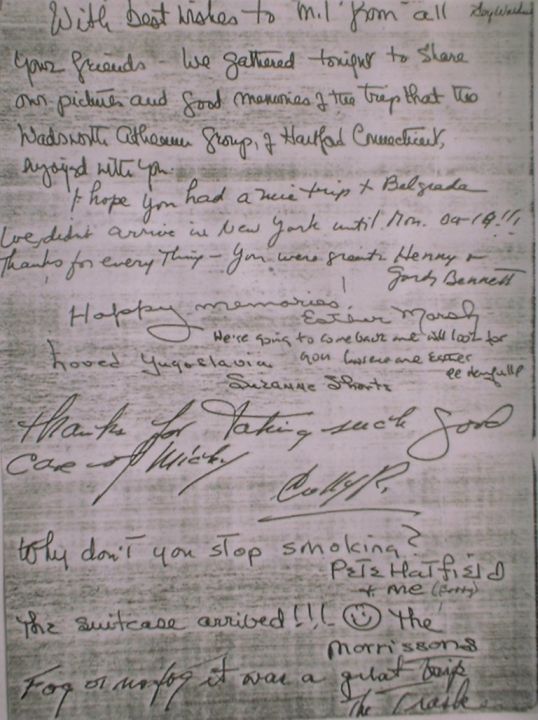 With best wishes to "Mil" from all
Your friends - We gathered tonight to share
our pictures and good memories of the trip that the
Wadsworth Atheneum Group, of Hartford Connecticut,
enjoyed with you.
I hope you had a nice trip to Belgrade
We didn't arrive in New York until Mon. Oct 19!!
Thanks for everything - You were great. Henny &
Gordy Bennett
Happy memories!
Esther Marsh
We're going to come back and will look for
you
Loved Yugoslavia
Suzanne Shortz
Thanks for taking such good
care of Micky
Colly P.
Why don't you stop smoking?
PETE HATFIELD
+ ME (Betty)
The suitcase arrived!!! ☺ The
Morrissons
Fog or no fog it was a great trip
The